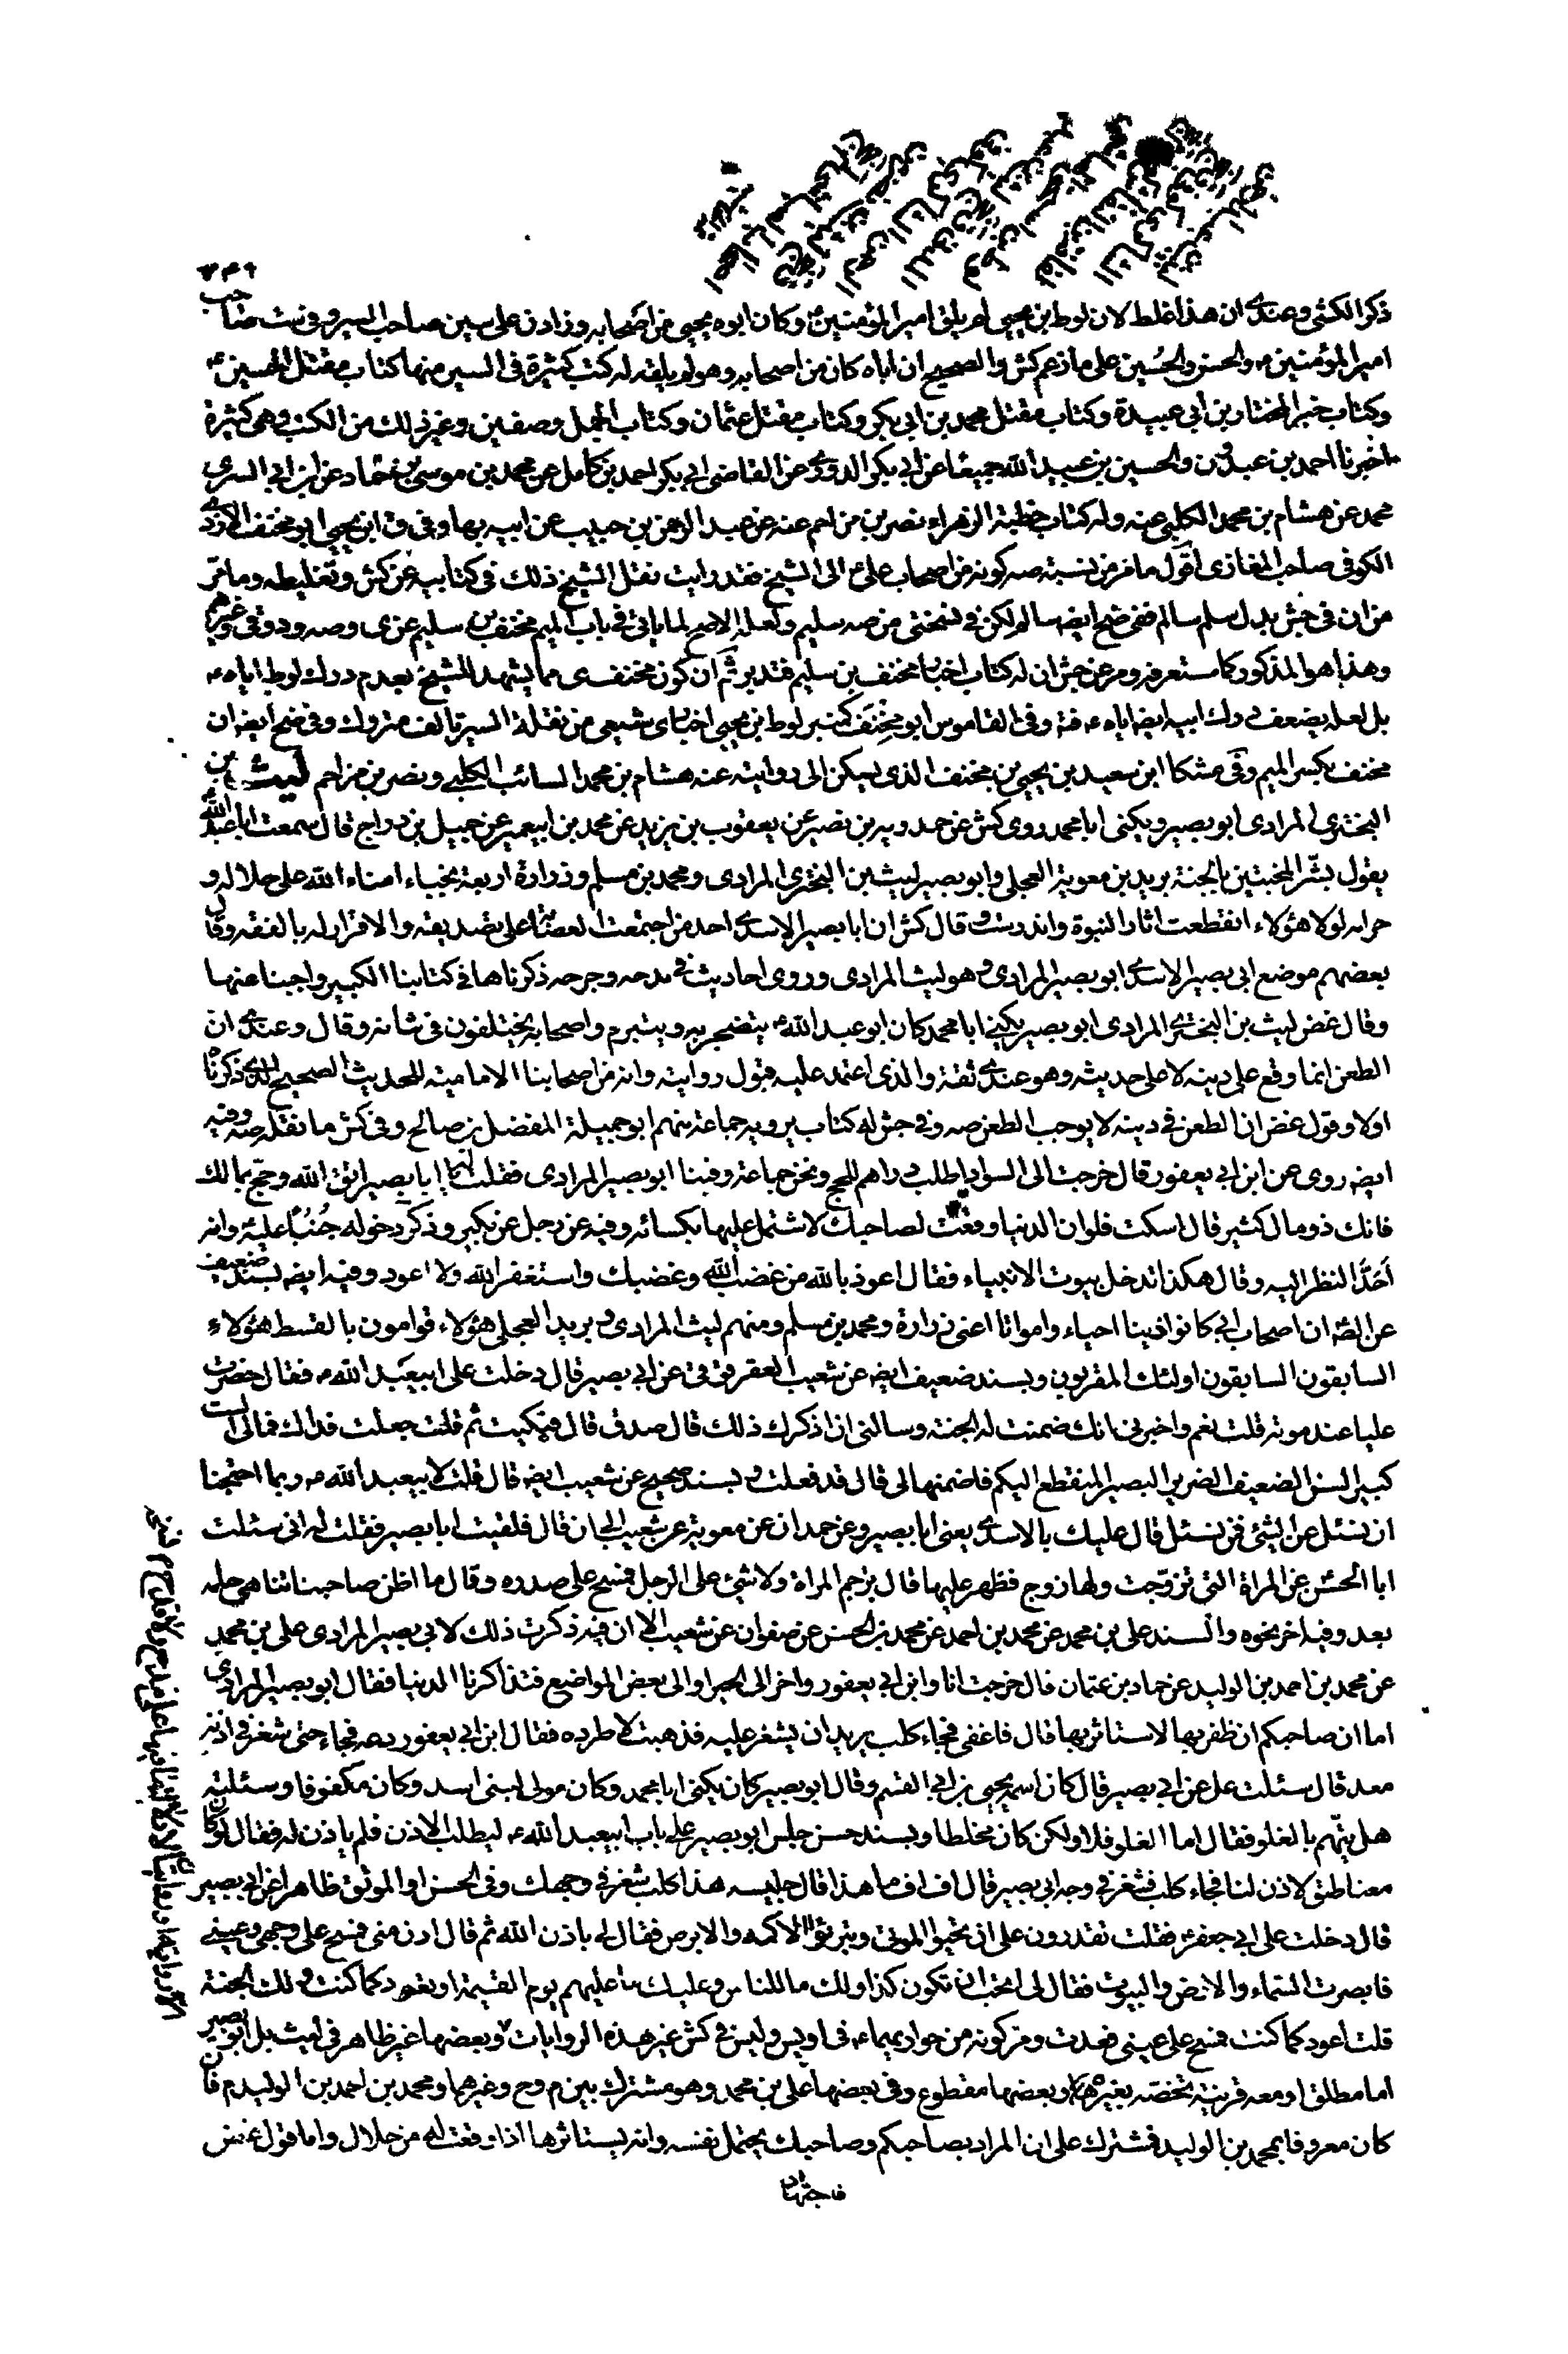 ٣٤٩
ذكر الكشى وعندى ان هذا غلط لان لوط بن يحيى لم يلق امير المؤمنين ع وكان ابوه يحيى من اصحابه وزاد ن على سين صاحب السير وفى ست صاحب
امير المؤمنين ع والحسن والحسين على ما زعم كش والصحيح ان اباه كان من اصحابه وهو لم يلقه له كتب كثيرة فى السير منها كتاب مقتل الحسين ع
وكتاب خبر المختار بن ابى عبيدة وكتاب مقتل محمد بن ابى بكر وكتاب مقتل عثمان وكتاب الجمل وصفين وغير ذلك من الكتب وهى كثيرة
اخبرنا احمد بن عبدون والحسين بن عبيد الله جميعا عن ابى بكر الدورى عن القاضى ابى بكر احمد بن كامل عن محمد بن موسى بن حماد عن ابن ابى السرى
محمد عن هشام بن محمد الكلبى عنه وله كتاب خطبة الزهراء نصر بن مزاحم عنه عن عبد الرحمن بن حبيب عن ابيه بها وفى ق ابن يحيى ابو مخنف الازدى
الكوفى صاحب المغازى اقول ما مر من نسبته صه كونه من اصحاب على ع الى الشيخ فقد رايت نقل الشيخ ذلك فى كتابيه عن كش وتغليطه وما مر
من ان فى جش بدل سلم سالم ففى ضح ايضه سالم لكن فى نسختى من صه سليم ولعله الاصح لما ياتى فى باب الميم مخنف بن سليم عن ى وصه ود وقى وغيرهم
وهذا هو المذكور كما ستعرفه ومر عن جش ان له كتاب اخبار مخنف بن سليم فتدبر ثم ان كون مخنف ى مما يشهد للشيخ بعدم درك لوط اياه ع
بل لعله يضعف درك ابيه ايضه اياه ع فته وفى القاموس ابو مخنف كمنبر لوط بن يحيى اخبارى شيعى من نقلة السير تالف متروك وفى ضح ايضه ان
مخنف بكسر الميم وفى مشكا ابن سعيد بن يحيى بن مخنف الذى ليكن الى روايته عنه هشام بن محمد السائب الكلبى ونصر بن مزاحم ليث بن
البخترى المرادى ابو بصير ويكنى ابا محمد روى كش عن حمدويه بن نصير عن يعقوب بن يزيد عن محمد بن ابيعمير عن جميل بن دراج قال سمعت ابا عبد الله ع
يقول بشر المخبتين بالجنة بريد بن معوية العجلى وابو بصير ليث بن البخترى المرادى ومحمد بن مسلم وزرارة اربعة نجباء امناء الله على حلاله و
حرامه لولا هؤلاء انقطعت اثار النبوة واندرست و قال كش ان ابا بصير الاسدى احد من اجتمعت العصابة على تصديقه والاقرار له بالفقه وقال
بعضهم موضع ابى بصير الاسدى ابو بصير المرادى و هو ليث المرادى وروى احاديث فى مدحه وجرحه ذكرناها فى كتابنا الكبير واجبنا عنها
وقال غض ليث بن البخترى المرادى ابو بصير يكنى ابا محمد كان ابو عبد الله ع يتضجر به ويتبرم واصحابه يختلفون فى شانه وقال وعندى ان
الطعن انما وقع على دينه لا على حديثه وهو عندى ثقة والذى اعتمد عليه قبول روايته وانه من اصحابنا الامامية للحديث الصحيح الذى ذكرناه
اولا وقول غض ان الطعن فى دينه لا يوجب الطعن صه وفى جش له كتاب يرويه جماعة منهم ابو جميلة المفضل بن صالح وفى كش ما نقله صه وفيه
ايضه روى عن ابن ابى يعفور قال خرجت الى السواد اطلب دراهم للحج ونحن جماعة وفينا ابو بصير المرادى فقلت له يا ابا بصير اتق الله وحج بمالك
فانك ذو مال كثير قال اسكت فلو ان الدنيا وقعت لصاحبك لاشتمل عليها بكسائه وفيه عن رجل عن بكير وذكر دخوله جنبا عليه وانه
احد النظر اليه وقال هكذا تدخل بيوت الانبياء فقال اعوذ بالله من غضب الله وغضبك واستغفر الله ولا اعود وفيه ايضه بسند ضعيف
عن الصه ان اصحاب ابى كانوا زينا احياء وامواتا اعنى زرارة ومحمد بن مسلم ومنهم ليث المرادى و بريد العجلى هؤلاء قوامون بالقسط هؤلاء
السابقون السابقون اولئك المقربون وبسند ضعيف ايضه عن شعيب العقرقوقى عن ابى بصير قال دخلت على ابيعبد الله ع فقال حضرت
عليا عند موته قلت نعم واخبرنى انك ضمنت له الجنة وسالنى ان اذكرك ذلك قال صدق قال فبكيت ثم قلت جعلت فداك فمالى الست
كبير السن الضعيف الضرير البصير المنقطع اليكم فاضمنها لى قال قد فعلت و بسند صحيح عن شعيب ايضه قال قلت لابيعبد الله ع ربما احتجنا
ان نسئل عن الشئ فمن نسئل قال عليك بالاسدى يعنى ابا بصير وعن حمدان عن معوية عن شعيب الى ان قال فلقيت ابا بصير فقلت له انى سئلت
ابا الحسن عن المراة التى تزوجت ولها زوج فظهر عليها قال ترجم المراة ولا شئ على الرجل فمسح على صدره وقال ما اظن صاحبنا تناهى حلمه
بعد وفيه اخر نحوه والسند على بن محمد عن محمد بن احمد عن محمد بن الحسن عن صفوان عن شعيب الا ان فيه ذكرت ذلك لابى بصير المرادى على بن محمد
عن محمد بن احمد بن الوليد عن حماد بن عثمان قال خرجت انا وابن ابى يعفور واخر الى الحيرة او الى بعض المواضع فتذاكرنا الدنيا فقال ابو بصير المرادى
اما ان صاحبكم ان ظفر بها لاستاثر بها قال فاغفى فجاء كلب يريد ان يشغر عليه فذهبت لاطرده فقال ابن ابى يعفور دعه فجاء حتى شغر فى اذنه
معد قال سئلت عل عن ابى بصير قال كان اسمه يحيى بن ابى القسم وقال ابو بصير كان يكنى ابا محمد وكان مولى لبنى اسد وكان مكفوفا وسئلته
هل يتهم بالغلو فقال اما الغلو فلا ولكن كان مخلطا وبسند حسن جلس ابو بصير على باب ابيعبد الله ع ليطلب الاذن فلم ياذن له فقال لو كان
معنا طبق لاذن لنا فجاء كلب فشغر فى وجه ابى بصير قال اف اف ما هذا قال جليسه هذا كلب شغر فى وجهك وفى الحسن او الموثق ظاهرا عن ابى بصير
قال دخلت على ابى جعفر ع فقلت تقدرون على ان تحيوا الموتى وتبرئوا الاكمه والابرص فقال لى باذن الله ثم قال ادن منى فمسح على وجهى وعينى
فابصرت السماء والارض والبيوت فقال لى اتحب ان تكون كذا ولك ما للناس وعليك ما عليهم يوم القيمة او تعود كما كنت و لك الجنة
قلت اعود كما كنت فمسح على عينى فعدت ومر كونه من حواريهما ع فى اويس وليس فى كش غير هذه الروايات وبعضها غير ظاهر فى ليث بل ابو بصير
اما مطلق او معه قرينة تخصه بغيره وبعضها مقطوع وفى بعضها على بن محمد وهو مشترك بين م وح وغيرهما ومحمد بن احمد بن الوليد م فان
كان معروفا بمحمد بن الوليد فمشترك على ان المراد بصاحبكم وصاحبك يحتمل نفسه وانه ليستاثرها اذا وقعت له من حلال واما قول غض
فاجتهاد